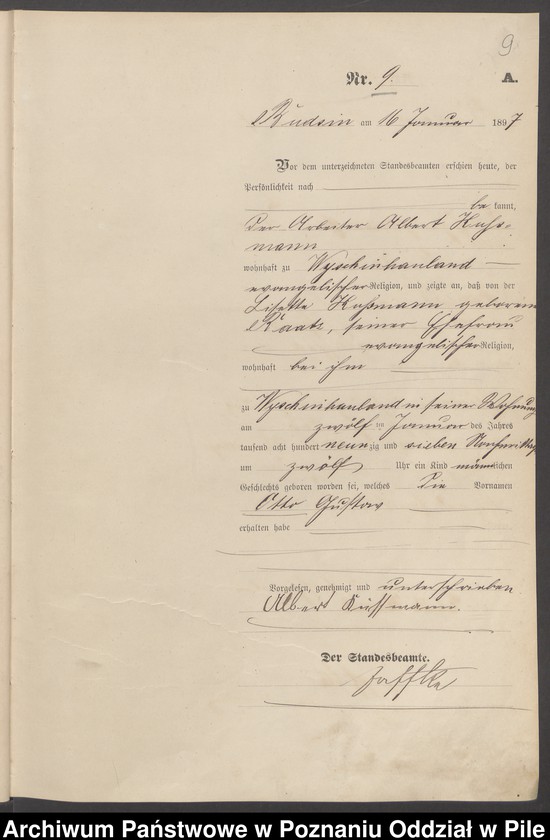 9
Nr. 9. A.
Budsin am 16 Januar 1897
Vor dem unterzeichneten Standesbeamten erschien heute, der
Persönlichkeit nach
be kannt,
der Arbeiter Albert Kuhs-
mann
wohnhaft zu Wyschinhauland
evangelischer Religion, und zeigte an, daß von der
Lisette Kußmann geborenen
Raatz, seiner Ehefrau
evangelischer Religion,
wohnhaft bei ihm
zu Wyschinhauland in seiner Wohnung
am zwölf ten Januar des Jahres
tausend acht hundert neun zig und sieben Nachmittag
um zwölf Uhr ein Kind männlichen
Geschlechts geboren worden sei, welches die Vornamen
Otto Gustav
erhalten habe
Vorgelesen, genehmigt und unterschrieben
Albert Kussmann.
Der Standesbeamte.
Jaffke
Archiwum Państwowe w Poznaniu Oddział w Pile